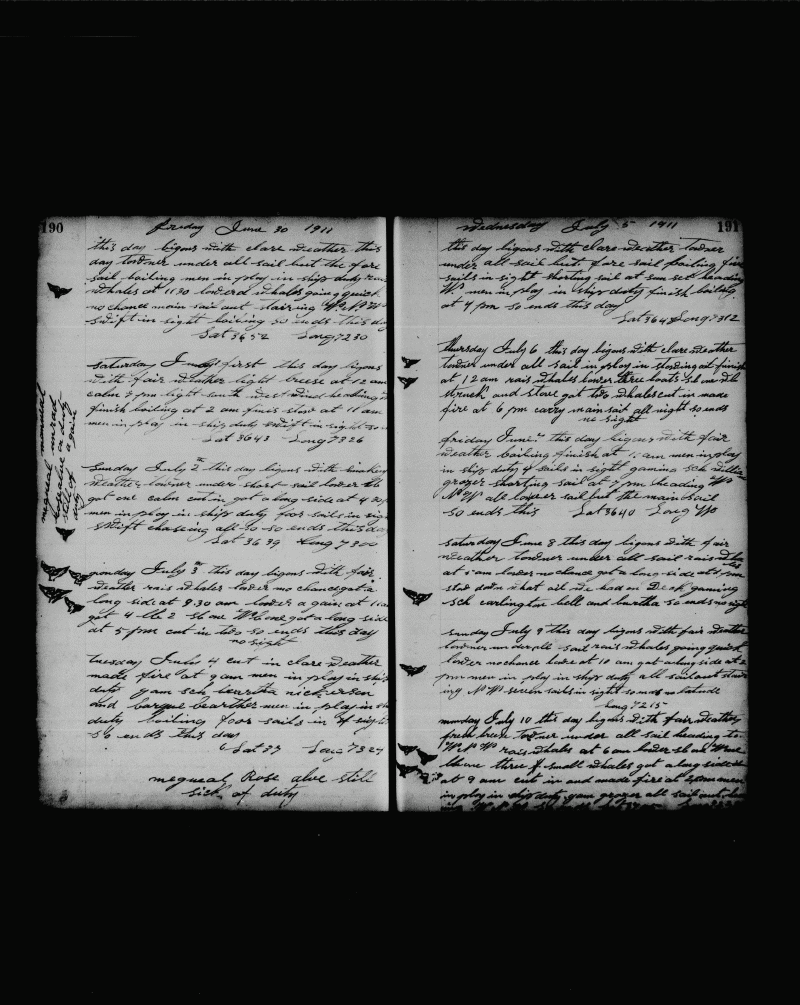 190
friday June 30 1911
this day bigons with clare weather this
day towner under all sail but the fore
sail boiling men in ploy in ship duty
whales at 1130 lowered whales going quick
no chance main sail out
swift in sight boiling so ends this day
Lat 36 52 Long 7230
Saturday first this day bigons
with fair weather light breeze at 12 am
calm 5 pm light south west wind heading
finish boiling at 2 am finis stow at 11 am
men in ploy in ship duty swift in sight so
Lat 3643 Long 7326
Sunday July 2 this day bigons with
weather towner under short sail lower
got one calm cut in got a long side at 4
men in ploy in ship duty four sails in sigh
swift chasing all so so ends this day
Lat 36 39 Long 7300
monday July 3 this day bigons with fair
weather rais whales lower no chance got a
long side at 930 am lower a gain at 11 am
got 4 one got a long side
at 5 pm cut in two so ends this day
no sight
tuesday July 4 cut in clare weather
made fire at 9 am men in ploy in ship
duty gam sch bertha nickerson
and barque men in ploy in
duty boiling foor sails in sight
so ends this day
Lat 37 Long 7327
megueal Rose alve still
sick of duty
megueal
alve on duty
a gain
191
Wednesday July 5 1911
this day bigons with clare weather towner
under all sail but fore sail boiling five
sails in sight shorting sail at sun set heading
W men in ploy in ship duty finish boiling
at 4 pm so ends this day
Lat 3648 Long 7312
thursday July 6 this day bigons with clare weather
towner under all sail in ploy in stowing at finish
at 12 am rais whales lower three boats
struck and stove got two whales cut in made
fire at 6 pm carry main sait all night so ends
no sight
friday June 7 this day bigons with fair
weather boiling finish at am men in ploy
in ship duty 4 sails in sight gaming sch
grozer shorting sail at 7 pm heading W
N W all lower sail but the main sail
so ends this Lat 3640 Long
saturday June 8 this day bigons with fair
weather towner under all sail rais whales
at am lower no chance got a long side at pm
stow down what oil we had on Deck gaming
sch carlington bell and bertha so ends no sight
sunday July 9 this day bigons with fair weather
towner under all sait rais whales going quick
lower no chance lower at 10 am got a long side at 2
pm men in ploy in ship duty all sail out
N W seven sails in sight so ends no latitude
Long 7215
monday July 10 this day bigons with fair weather
fresh breeze towner under all sail heading to
W N W rais whales at 6 am lower
three small whales got a long side
at 9 am cut in and made fire at men
in ploy in ship duty gam grozer all sail out